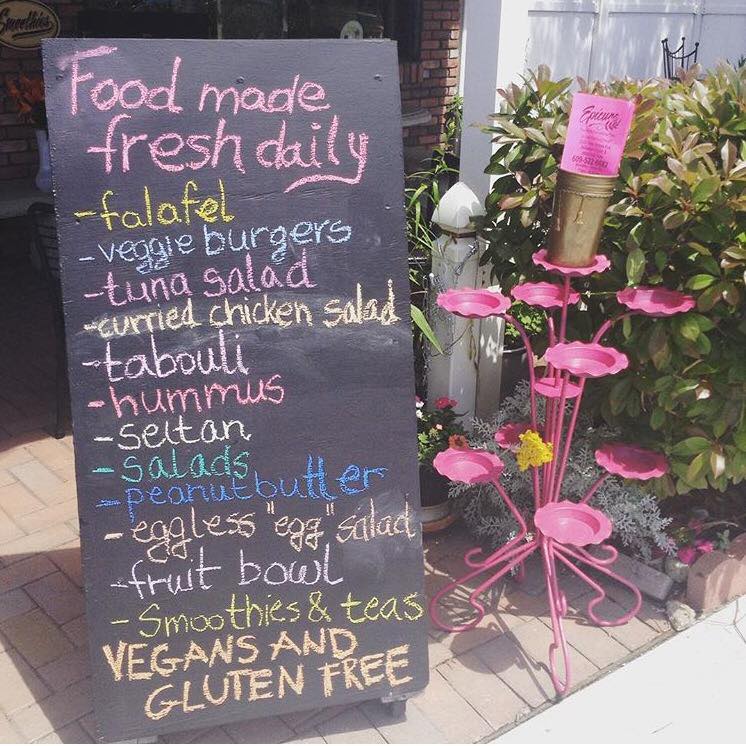 Smoothies
Food made
fresh daily
- falafel
- veggie burgers
- tuna salad
- curried chicken salad
- tabouli
- hummus
- seitan
- salads
- peanut butter
- eggless "egg" salad
- fruit bowl
- Smoothies & teas
VEGANS AND
GLUTEN FREE
Epicure